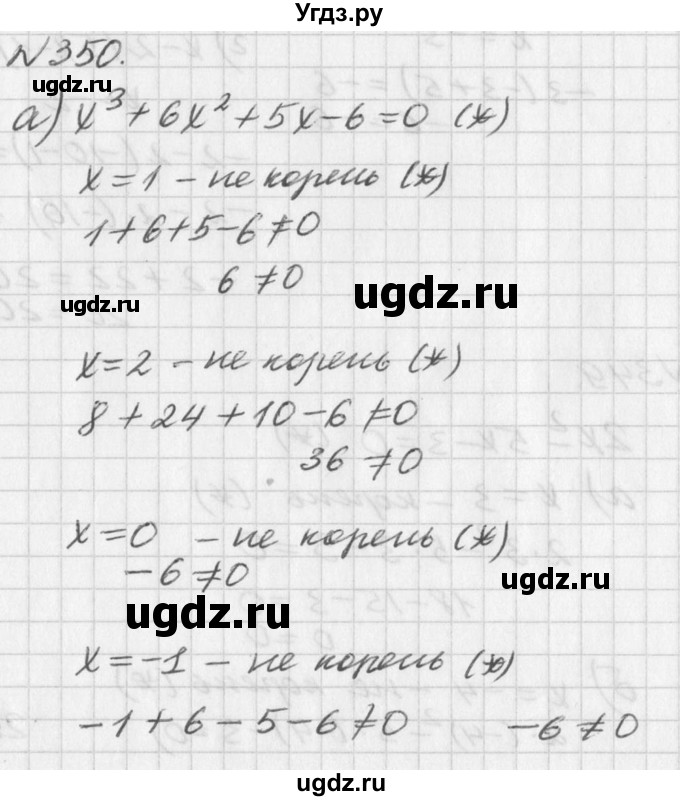 Угдз.ру
№350.
ugdz.ru
а) x³ + 6x² + 5x - 6 = 0 (*)
x = 1 – не корень (*)
1 + 6 + 5 - 6 ≠ 0
6 ≠ 0
ugdz.ru
ugdz.ru
x = 2 – не корень (*)
8 + 24 + 10 - 6 ≠ 0
36 ≠ 0
x = 0 – не корень (*)
- 6 ≠ 0
ugdz.ru
ugdz.ru
x = -1 – не корень (*)
- 1 + 6 - 5 - 6 ≠ 0 - 6 ≠ 0
ugdz.ru